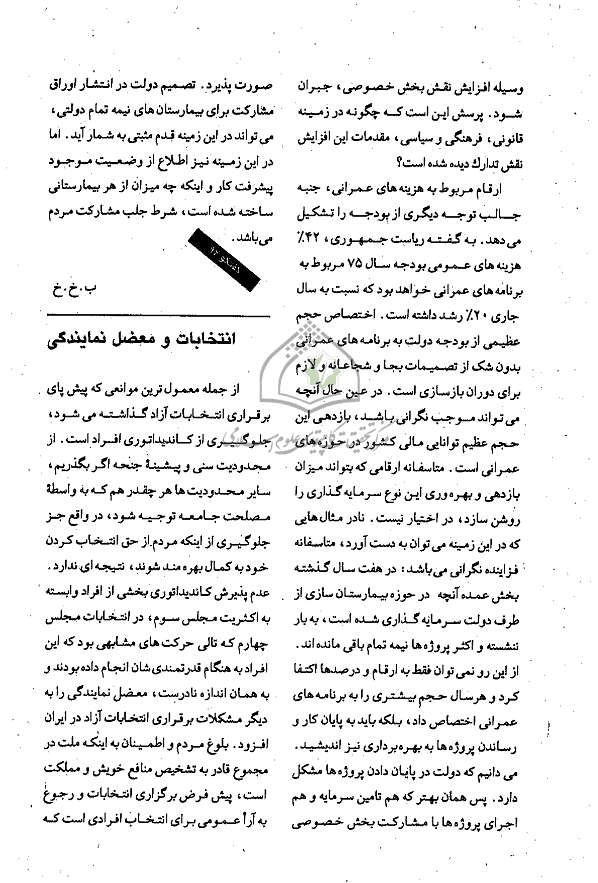 وسیله افزایش نقش بخش خصوصی، جبران
شود. پرسش این است که چگونه در زمینه
قانونی، فرهنگی و سیاسی، مقدمات این افزایش
نقش تدارك دیده شده است؟
ارقام مربوط به هزینه های عمرانی، جنبه
جالب توجه دیگری از بودجه را تشکیل
می دهد. به گفته ریاست جمهوری، ۴۲٪
هزینه های عمومی بودجه سال ۷۵ مربوط به
برنامه های عمرانی خواهد بود که نسبت به سال
جاری ۲۰٪ رشد داشته است. اختصاص حجم
عظیمی از بودجه دولت به برنامه های عمرانی
بدون شک از تصمیمات بجا و شجاعانه و لازم
برای دوران بازسازی است. در عین حال آنچه
می تواند موجب نگرانی باشد، بازدهی این
حجم عظیم توانایی مالی کشور در حوزه های
عمرانی است. متاسفانه ارقامی که بتواند میزان
بازدهی و بهره وری این نوع سرمایه گذاری را
روشن سازد، در اختیار نیست. نادر مثال هایی
که در این زمینه می توان به دست آورد، متاسفانه
فزاینده نگرانی می باشد: در هفت سال گذشته
بخش عمده آنچه در حوزه بیمارستان سازی از
طرف دولت سرمایه گذاری شده است، به بار
ننشسته و اکثر پروژه ها نیمه تمام باقی مانده اند.
از این رو نمی توان فقط به ارقام و درصدها اکتفا
کرد و هرسال حجم بیشتری را به برنامه های
عمرانی اختصاص داد، بلکه باید به پایان کار و
رساندن پروژه ها به بهره برداری نیز اندیشید.
می دانیم که دولت در پایان دادن پروژه ها مشکل
دارد. پس همان بهتر که هم تامین سرمایه و هم
اجرای پروژه ها با مشارکت بخش خصوصی
صورت پذیرد. تصمیم دولت در انتشار اوراق
مشارکت برای بیمارستان های نیمه تمام دولتی،
می تواند در این زمینه قدم مثبتی به شمار آید. اما
در این زمینه نیز اطلاع از وضعیت موجود
پیشرفت کار و اینکه چه میزان از هر بیمارستانی
ساخته شده است، شرط جلب مشارکت مردم
می باشد.
گفتگو ۹۲
ب.خ.خ
انتخابات و معضل نمایندگی
از جمله معمول ترین موانعی که پیش پای
برقراری انتخابات آزاد گذاشته می شود،
جلوگیری از کاندیداتوری افراد است. از
محدودیت سنی و پیشینهٔ جنحه اگر بگذریم،
سایر محدودیت ها هر چقدر هم که به واسطهٔ
مصلحت جامعه توجیه شود، در واقع جز
جلوگیری از اینکه مردم از حق انتخاب کردن
خود به کمال بهره مند شوند، نتیجه ای ندارد.
عدم پذیرش کاندیداتوری بخشی از افراد وابسته
به اکثریت مجلس سوم، در انتخابات مجلس
چهارم که تالی حرکت های مشابهی بود که این
افراد به هنگام قدرتمندی شان انجام داده بودند و
به همان اندازه نادرست، معضل نمایندگی را به
دیگر مشکلات برقراری انتخابات آزاد در ایران
افزود. بلوغ مردم و اطمینان به اینکه ملت در
مجموع قادر به تشخیص منافع خویش و مملکت
است، پیش فرض برگزاری انتخابات و رجوع
به آرأ عمومی برای انتخاب افرادی است که